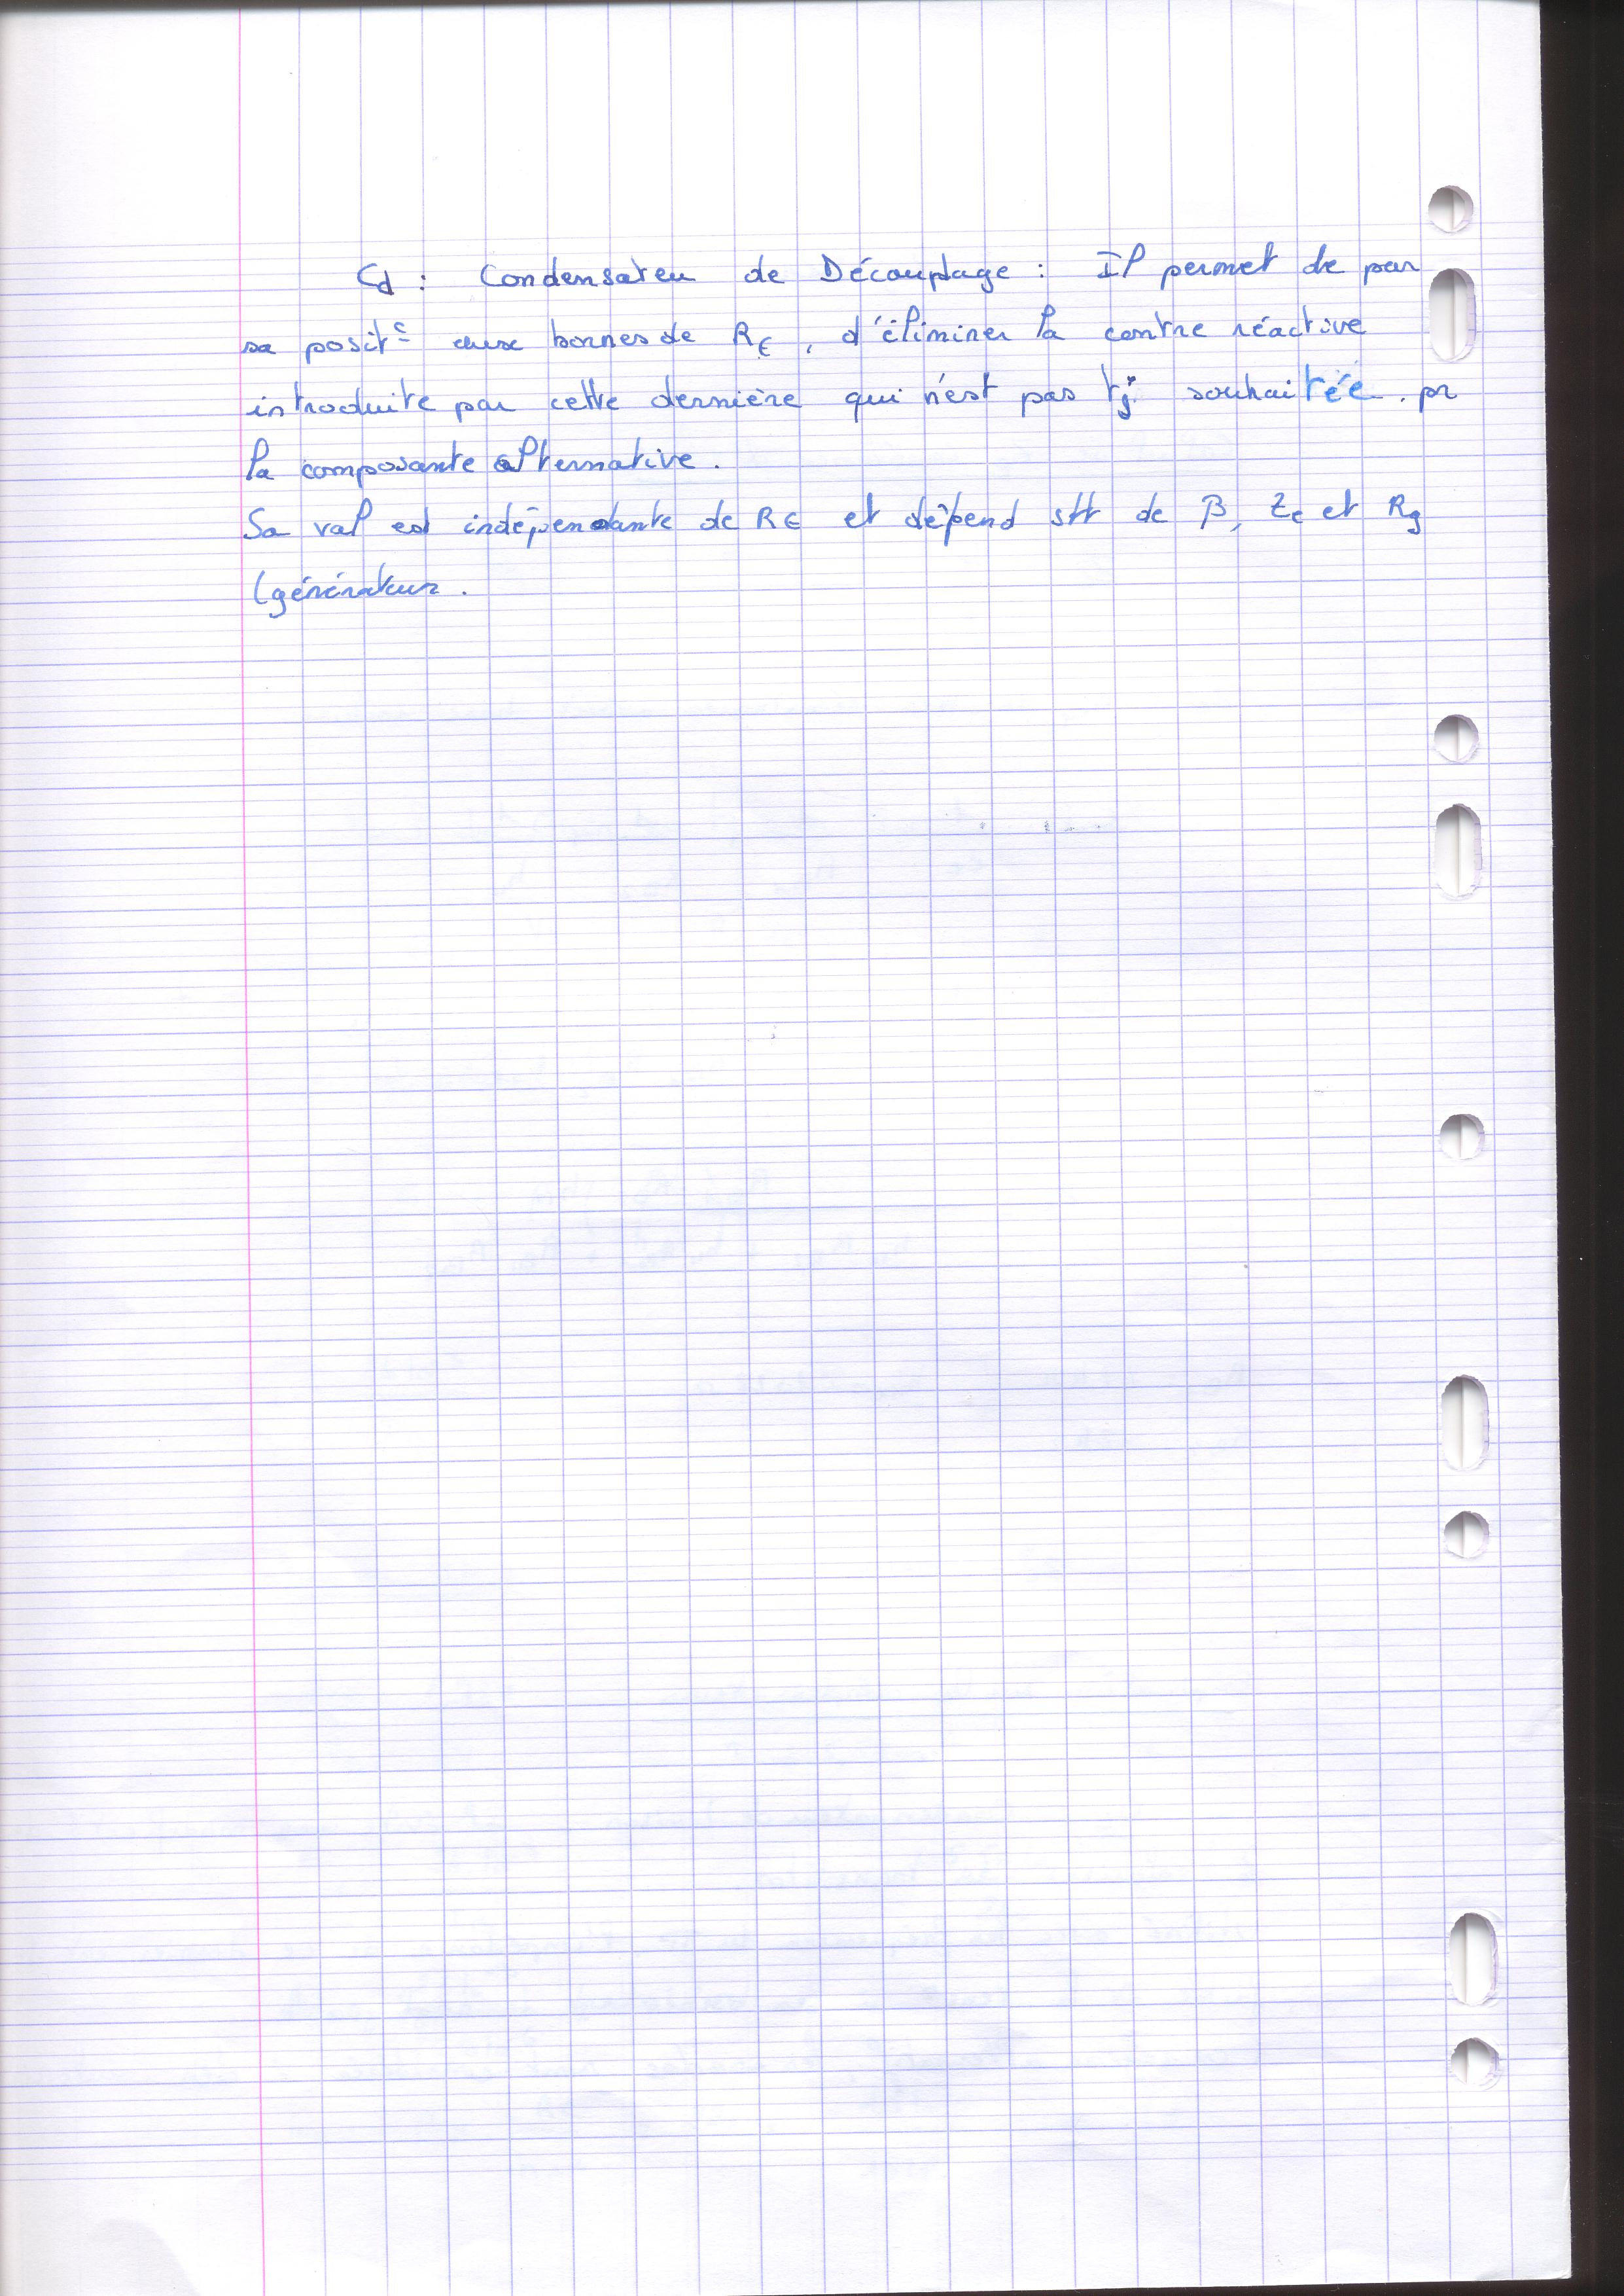 Cd : Condensateu de Découplage : Il permet de par
sa positᶜ aux bornes de RE, d'éliminer la contre réactive
introduite par cette dernière qui n'est pas tj souhaitée. pr
la composante alternative.
Sa val est indépendante de RE et dépend stt de β, Ze et Rg
(générateur.